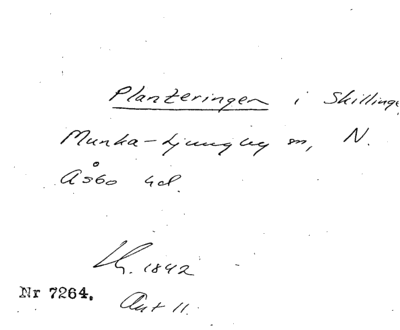 Planteringen i Skillinge
Munka-Ljungby sn, N.
Åsbo hd.
Lk. 1842
Nr 7264. Aut 11.